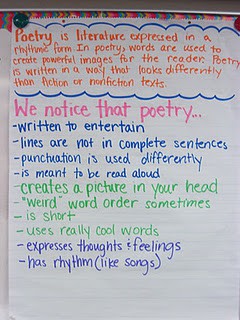 Poetry is literature expressed in a
rhythmic form. In poetry, words are used to
create powerful images for the reader. Poetry
is written in a way that looks differently
than fiction or nonfiction texts.
We notice that poetry...
-written to entertain
-lines are not in complete sentences
-punctuation is used differently
-is meant to be read aloud
-creates a picture in your head
-"weird" word order sometimes
-is short
-uses really cool words
-expresses thoughts & feelings
-has rhythm (like songs)